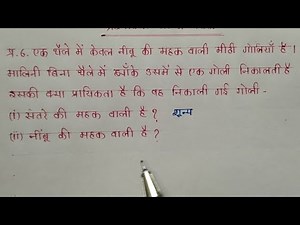 प्र.6. एक थैले में केवल नींबू की महक वाली मीठी गोलियाँ हैं।
मालिनी बिना थैले में झाँके उसमें से एक गोली निकालती है
उसकी क्या प्रायिकता है कि वह निकाली गई गोली -
(i) संतरे की महक वाली है? शून्य
(ii) नींबू की महक वाली है?